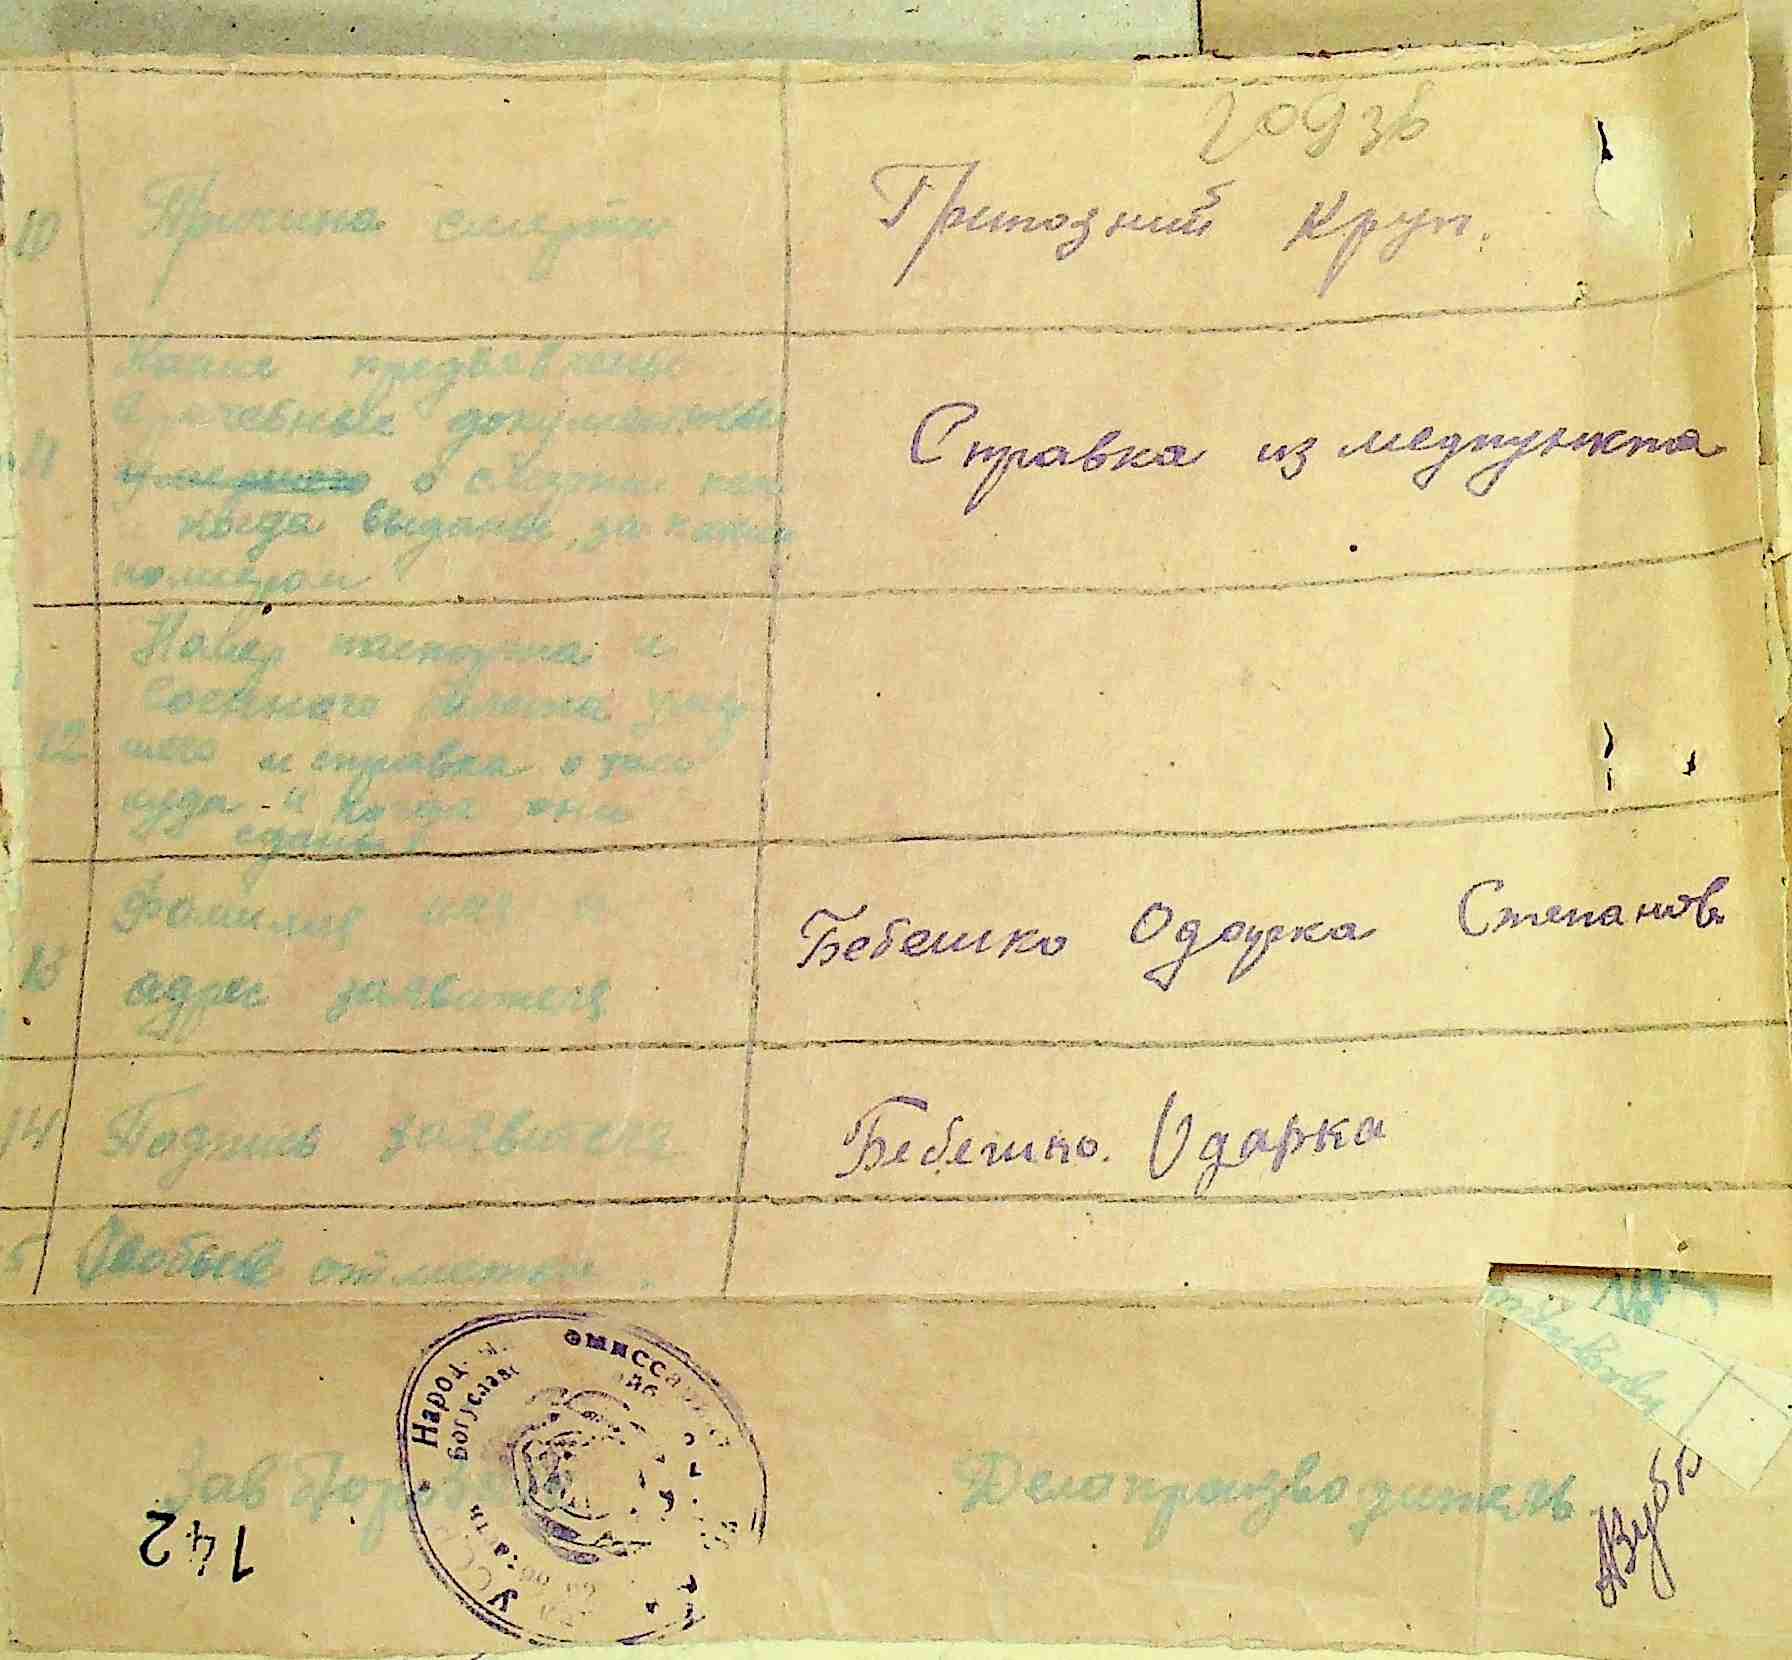 10 Причина смерти Грипозний Круп.
11 Какие предъявлены
врачебные документы Справка из медпункта
умершего о смерти кем
и когда выданы, за каким
номером
12 Номер паспорта и
военного билета умер
шего и справка о том
куда и когда они
сданы
Фамилия имя и Бебешко Одарка Степанов.
адрес заявителя
14 Подпись заявителя Бебешко. Одарка
5 Особые отметки.
Народ. эмиссариа
Богуслав
УССР
Зав
Делопроизводитель
142